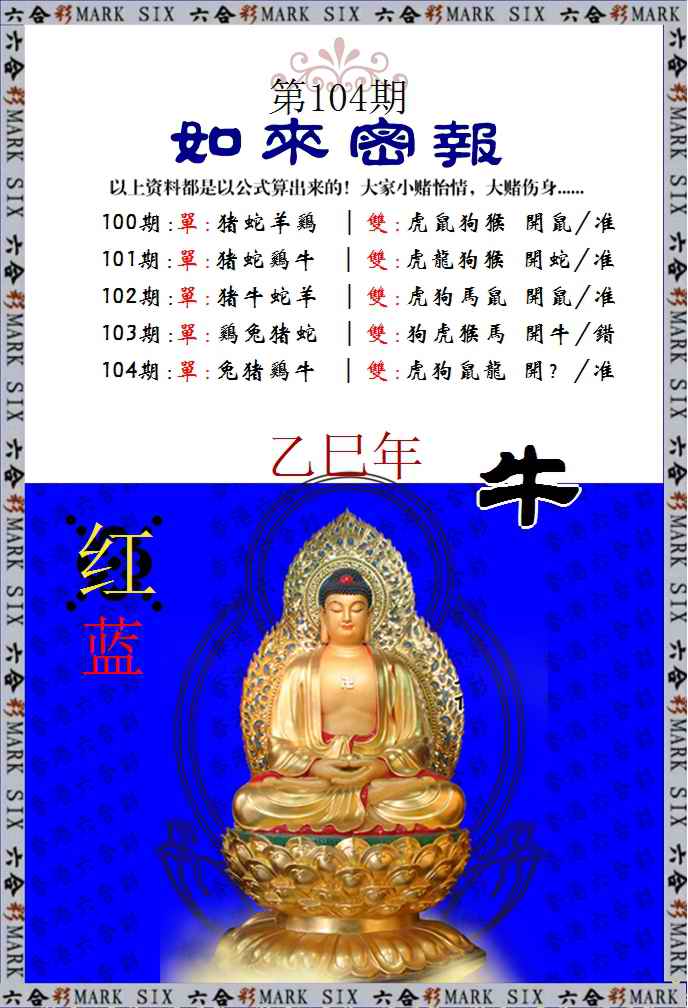 六合彩MARK SIX 六合彩MARK SIX 六合彩MARK SIX 六合彩MARK SIX
第104期
如來密報
以上资料都是以公式算出来的！大家小赌怡情，大赌伤身......
100期:單:猪蛇羊鷄 | 雙:虎鼠狗猴 開鼠/准
101期:單:猪蛇鷄牛 | 雙:虎龍狗猴 開蛇/准
102期:單:猪牛蛇羊 | 雙:虎狗馬鼠 開鼠/准
103期:單:鷄兔猪蛇 | 雙:狗虎猴馬 開牛/錯
104期:單:兔猪鷄牛 | 雙:虎狗鼠龍 開? /准
乙巳年
牛
红
蓝
六合彩MARK SIX 六合彩MARK SIX 六合彩MARK SIX 六合彩MARK SIX